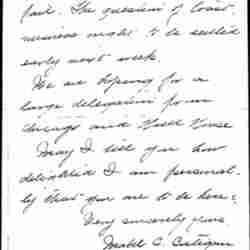 paid. The question of Coast
business ought to be settled
early next week.
We are hoping for a
large delegation from
Chicago and Hull House
May I tell you how
delighted I am personal-
ly that you are to be here.
Very sincerely yours
Mabel C. Costigan